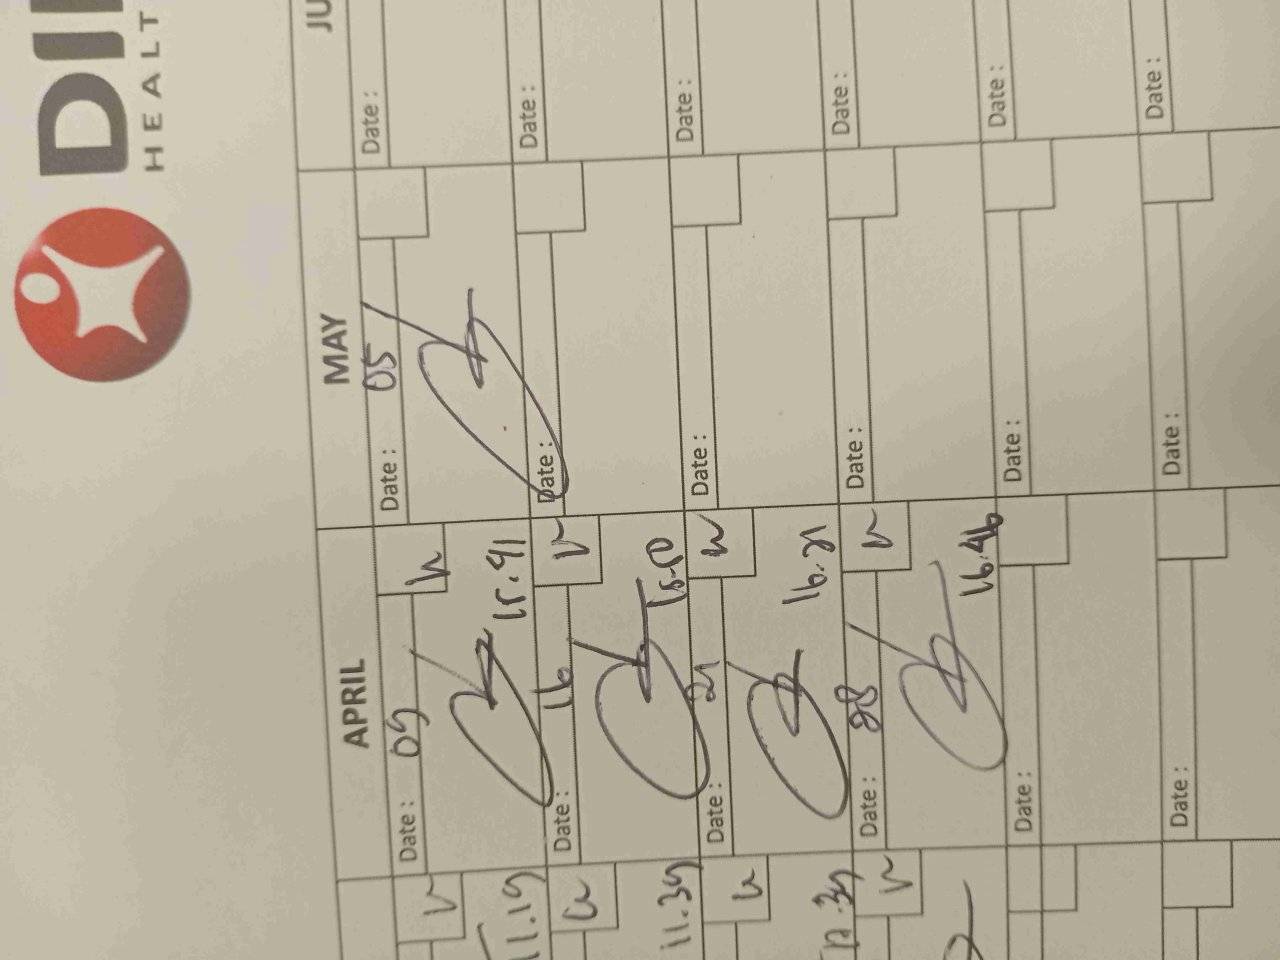 HEALT
APRIL
MAY
Date : 09
15.41
Date : 16
15.50
Date : 21
16.21
Date : 28
16.46
Date :
Date :
Date : 05
Date :
Date :
Date :
Date :
Date :
Date :
Date :
Date :
Date :
Date :
Date :
11.19
11.39